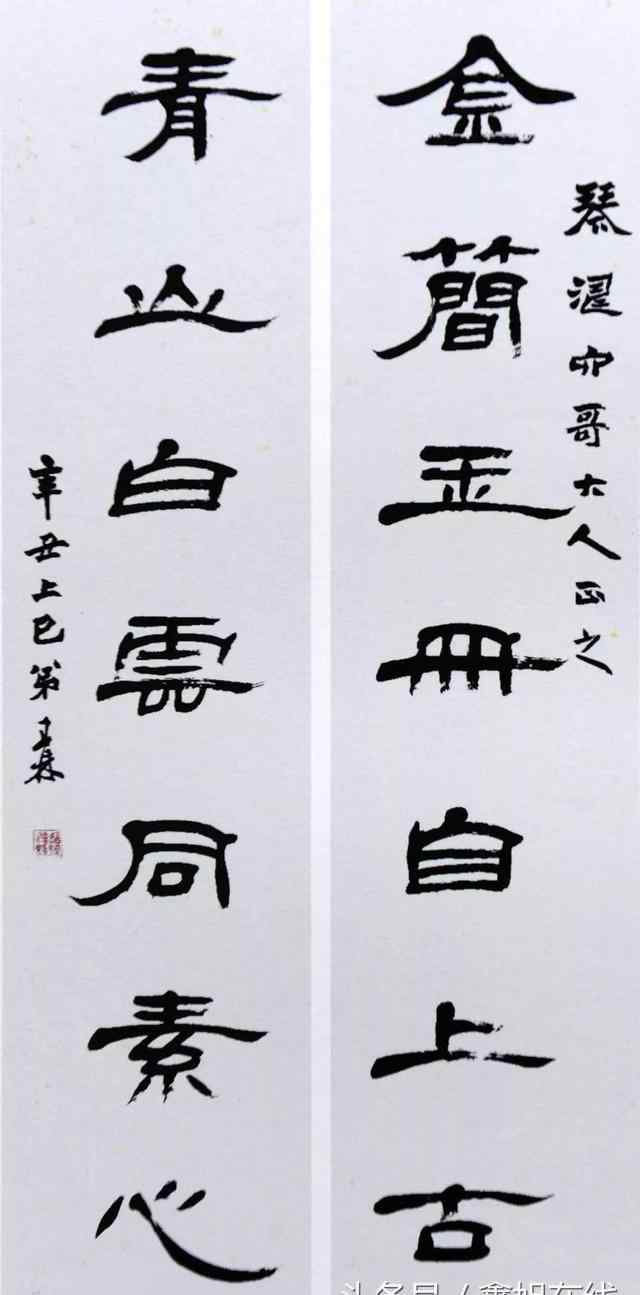 琴六哥大人正之
金簡玉冊自上古
青山白雲同素心
辛丑上巳弟
头条号 / 鑫旭在线